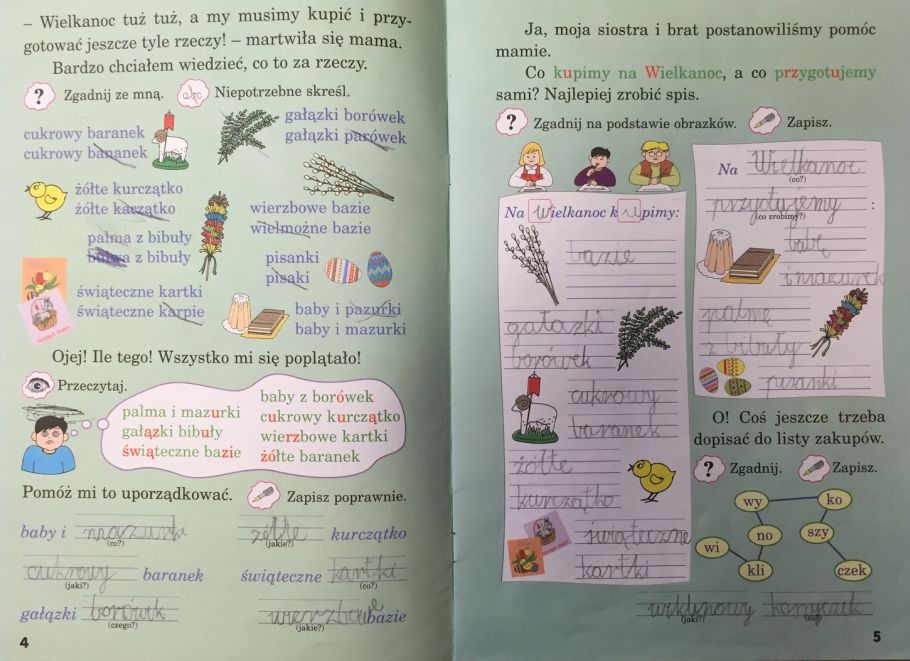 – Wielkanoc tuż tuż, a my musimy kupić i przy-
gotować jeszcze tyle rzeczy! – martwiła się mama.
Bardzo chciałem wiedzieć, co to za rzeczy.
? Zgadnij ze mną. abc Niepotrzebne skreśl.
cukrowy baranek
cukrowy bananek
gałązki borówek
gałązki parówek
żółte kurczątko
żółte kaczątko
wierzbowe bazie
wielmożne bazie
palma z bibuły
bulwa z bibuły
pisanki
pisaki
świąteczne kartki
świąteczne karpie
baby i pazurki
baby i mazurki
Ojej! Ile tego! Wszystko mi się poplątało!
Przeczytaj.
palma i mazurki
gałązki bibuły
świąteczne bazie
baby z borówek
cukrowy kurczątko
wierzbowe kartki
żółte baranek
Pomóż mi to uporządkować. Zapisz poprawnie.
baby i mazurki
(co?)
żółte kurczątko
(jakie?)
cukrowy baranek
(jaki?)
świąteczne kartki
(co?)
gałązki borówk
(czego?)
wierzbowe bazie
(jakie?)
4
Ja, moja siostra i brat postanowiliśmy pomóc
mamie.
Co kupimy na Wielkanoc, a co przygotujemy
sami? Najlepiej zrobić spis.
? Zgadnij na podstawie obrazków. Zapisz.
Na Wielkanoc kupimy:
bazie
gałązki
borówek
cukrowy
baranek
żółte
kurczątko
świąteczne
kartki
Na Wielkanoc
(co?)
przygotujemy :
(co zrobimy?)
babę
i mazurek
palmę
z bibuły
pisanki
O! Coś jeszcze trzeba
dopisać do listy zakupów.
? Zgadnij. Zapisz.
wy ko
no szy
wi
kli czek
wiklinowy koszyczek
(jaki?) (co?)
5